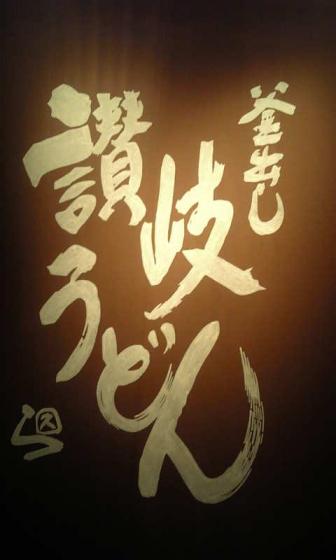 釜出し
讃岐
うどん